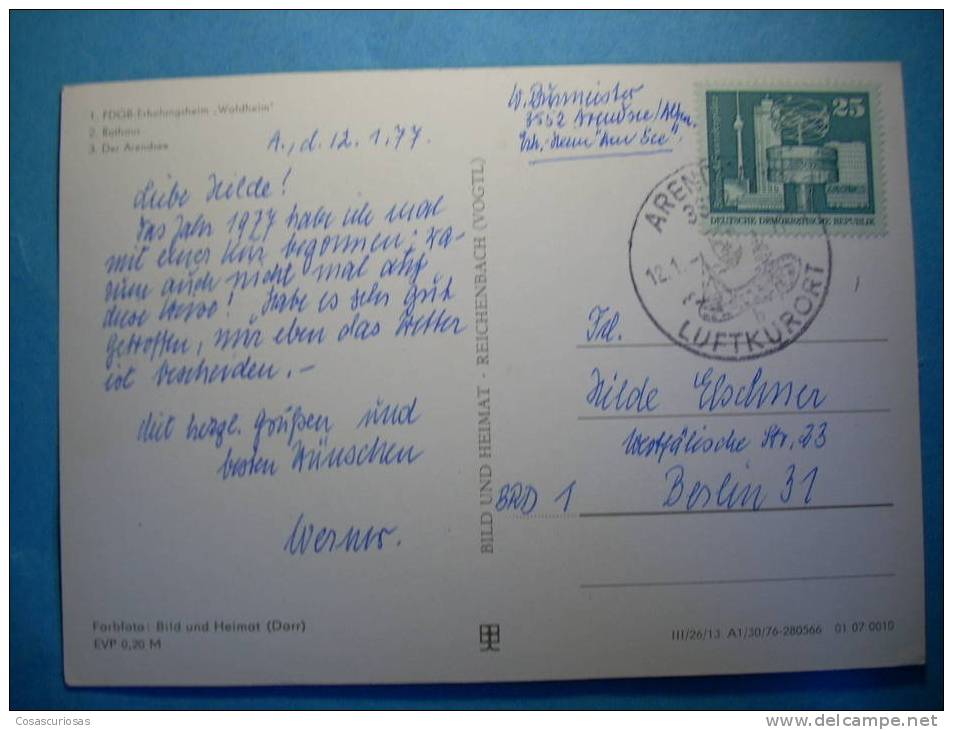 1. FDGB-Erholungsheim „Waldheim"
2. Rathaus
3. Der Arendsee
A., d. 12. 1. 77.
Liebe Hilde!
Das Jahr 1977 habe ich mal
mit einer Kur begonnen; wa-
rum auch nicht mal auf
diese Weise! Habe es sehr gut
getroffen, nur eben das Wetter
ist bescheiden. –
Mit herzl. Grüßen und
besten Wünschen
Werner.
Farbfoto: Bild und Heimat (Darr)
EVP 0,20 M
BILD UND HEIMAT · REICHENBACH (VOGTL)
W. Burmeister
3552 Arendsee/Altm.
Erh.-Heim "Am See".
25
DEUTSCHE DEMOKRATISCHE REPUBLIK
AREND
12.1.
LUFTKURORT
Frl.
Hilde Elschner
Westfälische Str. 23
BRD 1 Berlin 31
III/26/13 A1/30/76-280566 01 07 0010
Cosascuriosas
www.delcampe.net